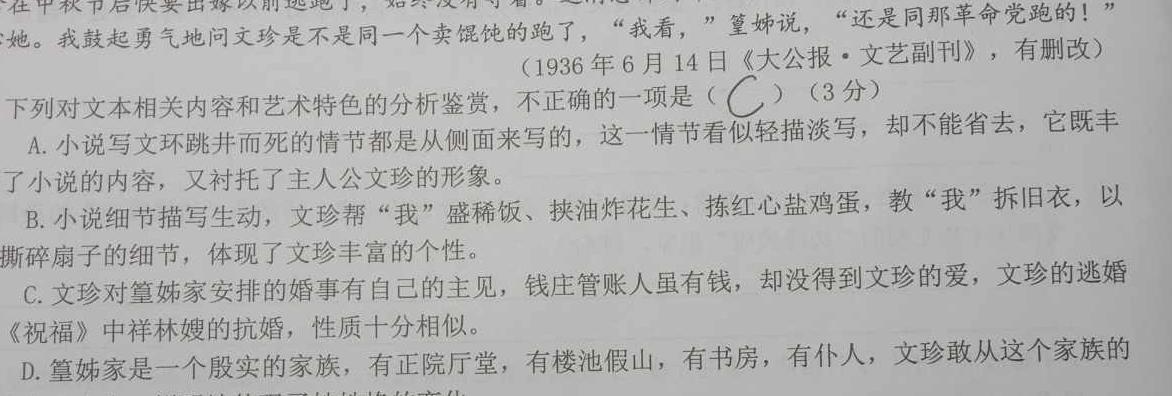 在中秋节后快要出嫁以前逃跑了，始终没有
她。我鼓起勇气地问文珍是不是同一个卖馄饨的跑了，“我看，”篁姊说，“还是同那革命党跑的！”
（1936年6月14日《大公报·文艺副刊》，有删改）
下列对文本相关内容和艺术特色的分析鉴赏，不正确的一项是（C）（3分）
A.小说写文环跳井而死的情节都是从侧面来写的，这一情节看似轻描淡写，却不能省去，它既丰
了小说的内容，又衬托了主人公文珍的形象。
B.小说细节描写生动，文珍帮“我”盛稀饭、挟油炸花生、拣红心盐鸡蛋，教“我”拆旧衣，以
撕碎扇子的细节，体现了文珍丰富的个性。
C.文珍对篁姊家安排的婚事有自己的主见，钱庄管账人虽有钱，却没得到文珍的爱，文珍的逃婚
《祝福》中祥林嫂的抗婚，性质十分相似。
D.篁姊家是一个殷实的家族，有正院厅堂，有楼池假山，有书房，有仆人，文珍敢从这个家族的